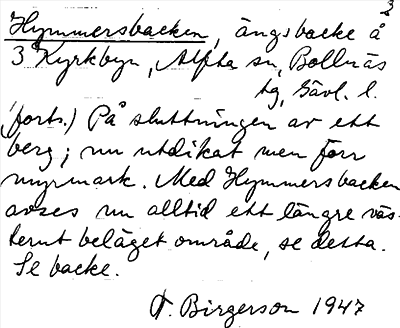 3
Hymmersbacken, ängsbacke å
3 Kyrkbyn, Alfta sn, Bollnäs
tg, Gävl. l.
(forts.) På sluttningen av ett
berg; nu utdikat men förr
myrmark. Med Hymmersbacken
avses nu alltid ett längre väs-
terut beläget område, se detta.
Se backe.
F. Birgerson 1947